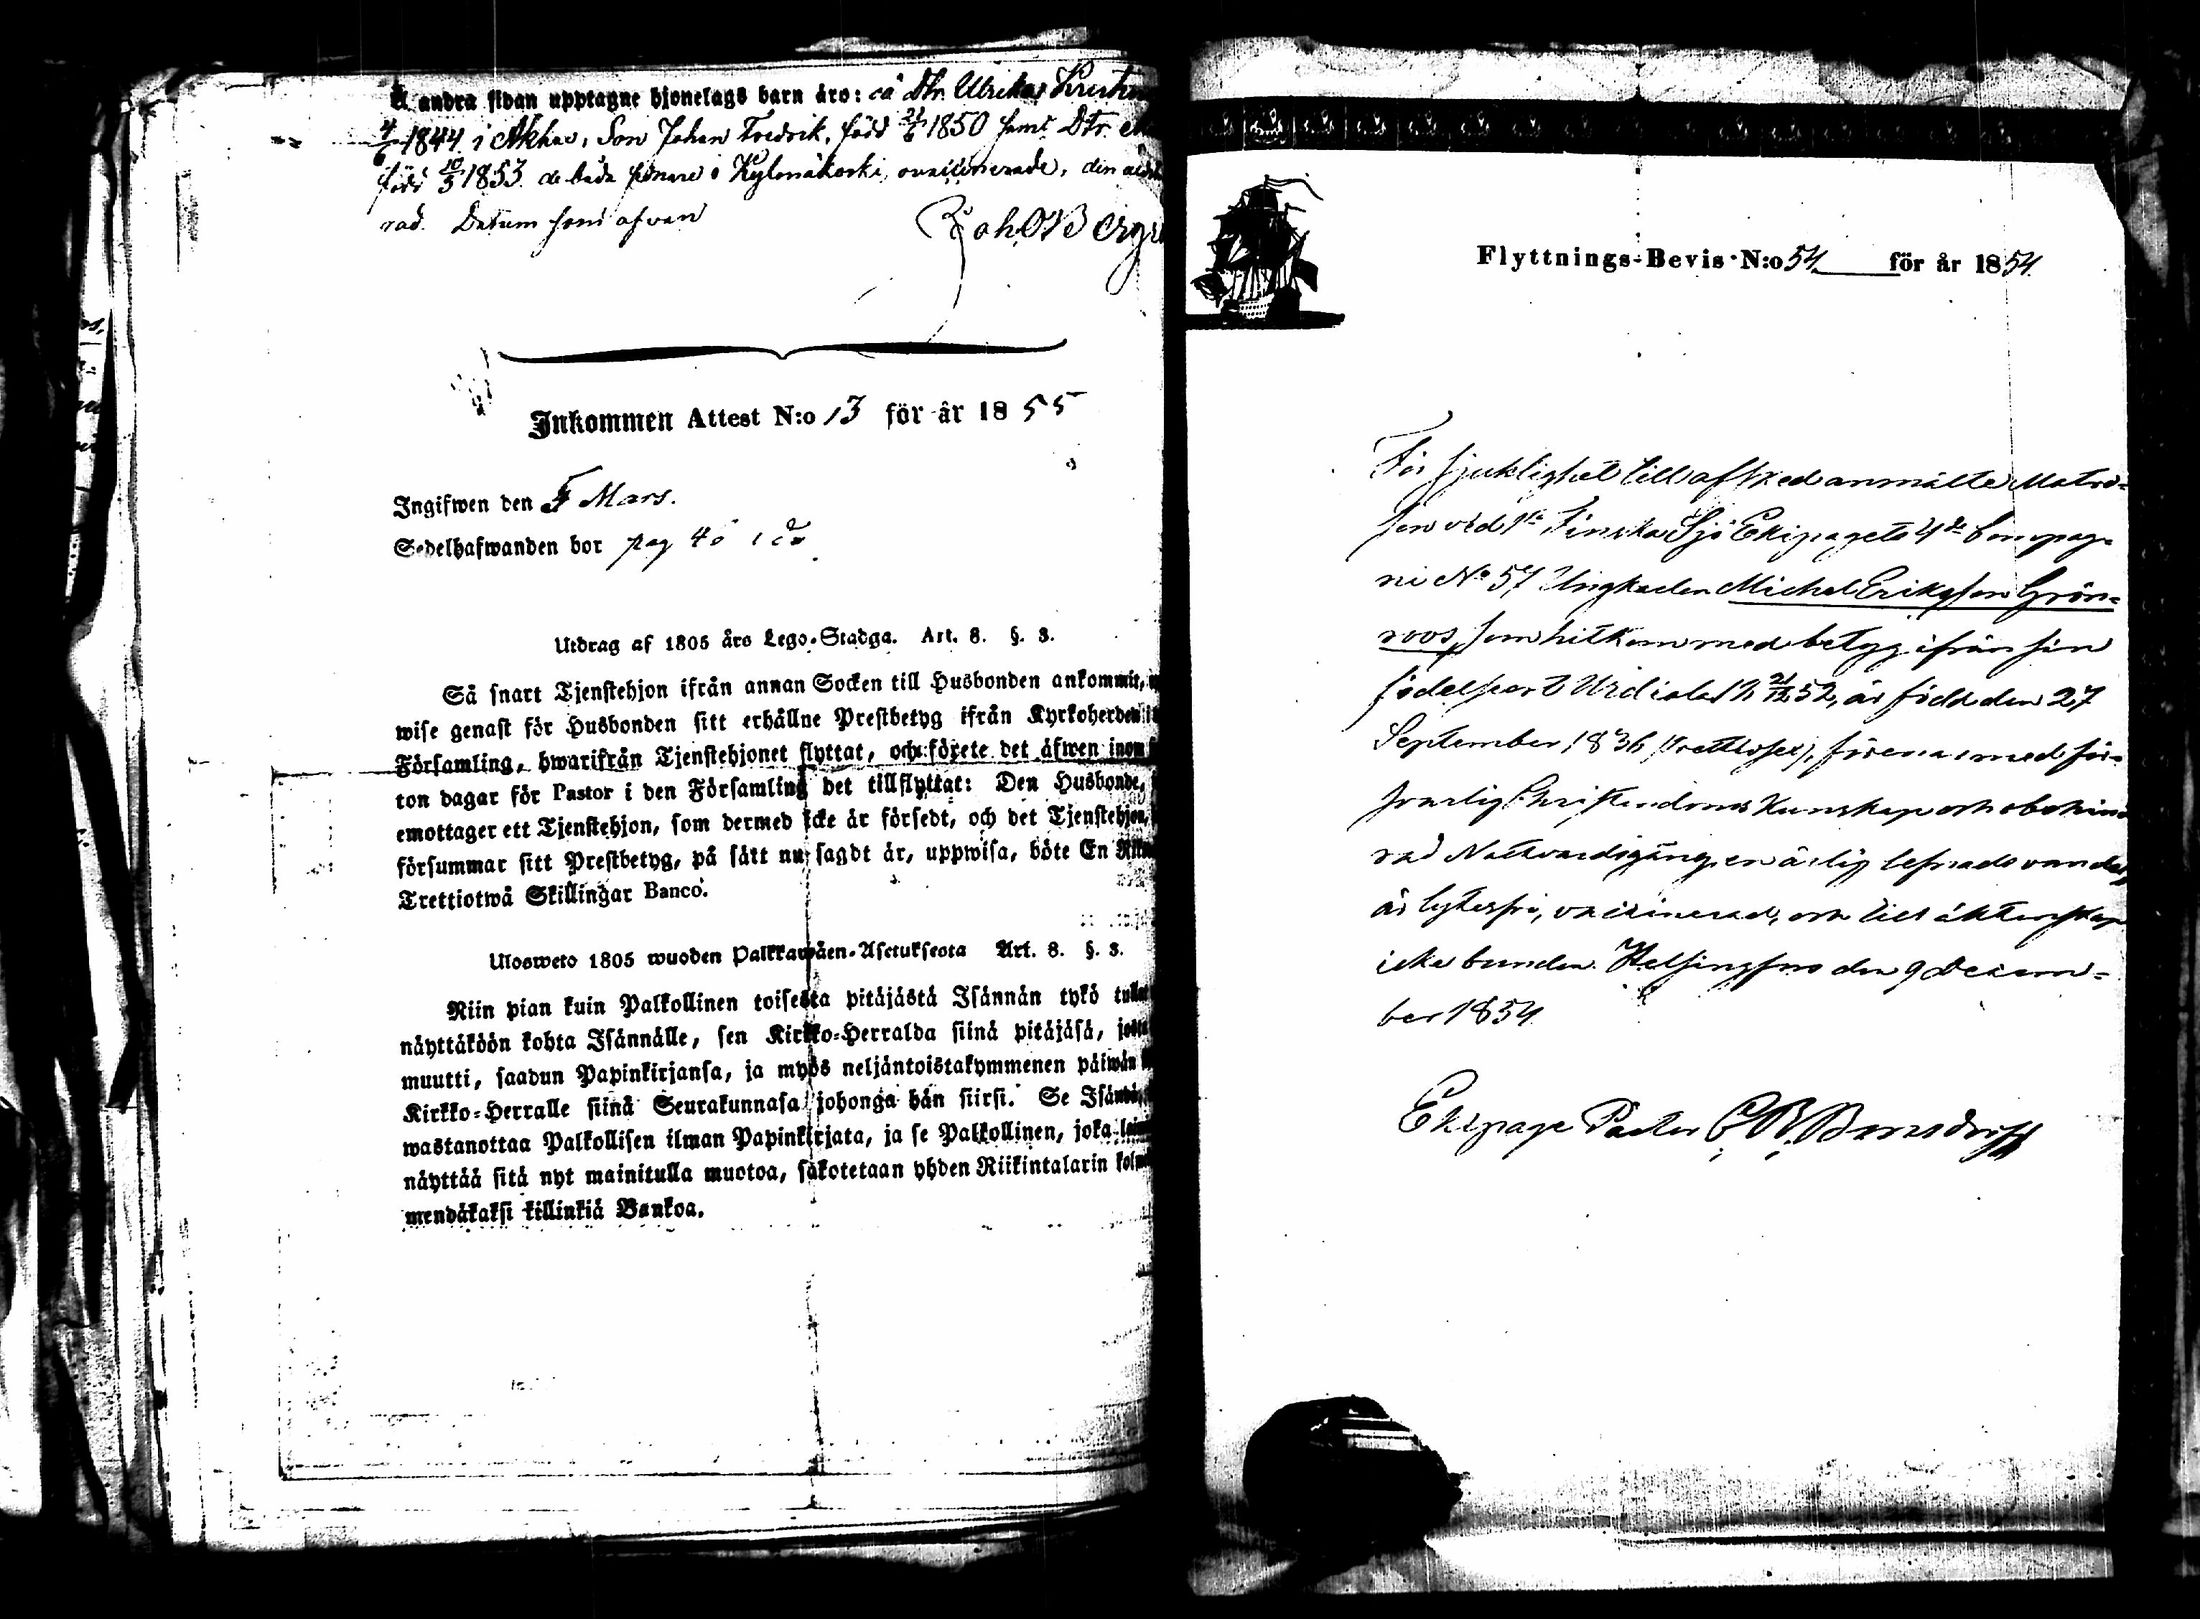 Å andra sidan upptagne hjonelags barn äro: ca Dtr. Ulrika Kristin
4/6 1844 i Akkas, Son Johan Fredrik, född 21/6 1850 samt Dtr.
född 10/5 1853 de båda senare i Kylmäkoski, ovaccinerade, den
rad. Datum som ofvan
Joh. O. Bergr
Inkommen Attest N:o 13 för år 1855
Ingifwen den 5 Mars.
Sedelhafwanden bor pag 40
Utdrag af 1805 års Lego-Stadga. Art. 8. §. 3.
Så snart Tjenstehjon ifrån annan Socken till Husbonden ankommit,
wise genast för Husbonden sitt erhållne Prestbetyg ifrån Kyrkoherden i
Församling, hwarifrån Tjenstehjonet flyttat, och förete det äfwen inom
ton dagar för Pastor i den Församling det tillflyttat: Den Husbonde,
emottager ett Tjenstehjon, som dermed icke är försedt, och det Tjenstehjon,
försummar sitt Prestbetyg, på sätt nu sagdt är, uppwisa, böte En Riks
Trettiotwå Skillingar Banco.
Ulosweto 1805 wuoden Palkkawäen-Asetuksesta Art. 8. §. 3.
Niin pian kuin Palkollinen toisesta pitäjästä Isännän tykö tullut
näyttäköön kohta Isännälle, sen Kirkko-Herralda siinä pitäjäsä, josta
muutti, saadun Papinkirjansa, ja myös neljäntoistakymmenen päiwän
Kirkko-Herralle siinä Seurakunnasa johonga hän siirsi. Se Isäntä,
wastanottaa Palkollisen ilman Papinkirjata, ja se Palkollinen, joka
näyttää sitä nyt mainitulla muotoa, sakotetaan yhden Riikintalarin kolm
mendäkaksi killinkiä Bankoa.
Flyttnings-Bevis N:o 54 för år 1854.
För sjuklighet till afsked anmälte Matro-
sen vid 1sta Finska Sjö Ekipagets 4de Compag-
ni No 57 Ungkarlen Michel Eriksson Grön-
roos, som hitkom med betyg ifrån sin
födelseort Urdiala 21/12 52, är född den 27
September 1836 (trettiosex), förenar med för-
svarlig Christendoms Kunskap och obehind-
rad Nattvardsgång en ärlig lefnads vandel,
är lytesfri, vaccinerad, och till äktenskap
icke bunden. Helsingfors den 9 Decem-
ber 1854.
Ekipage Pastor